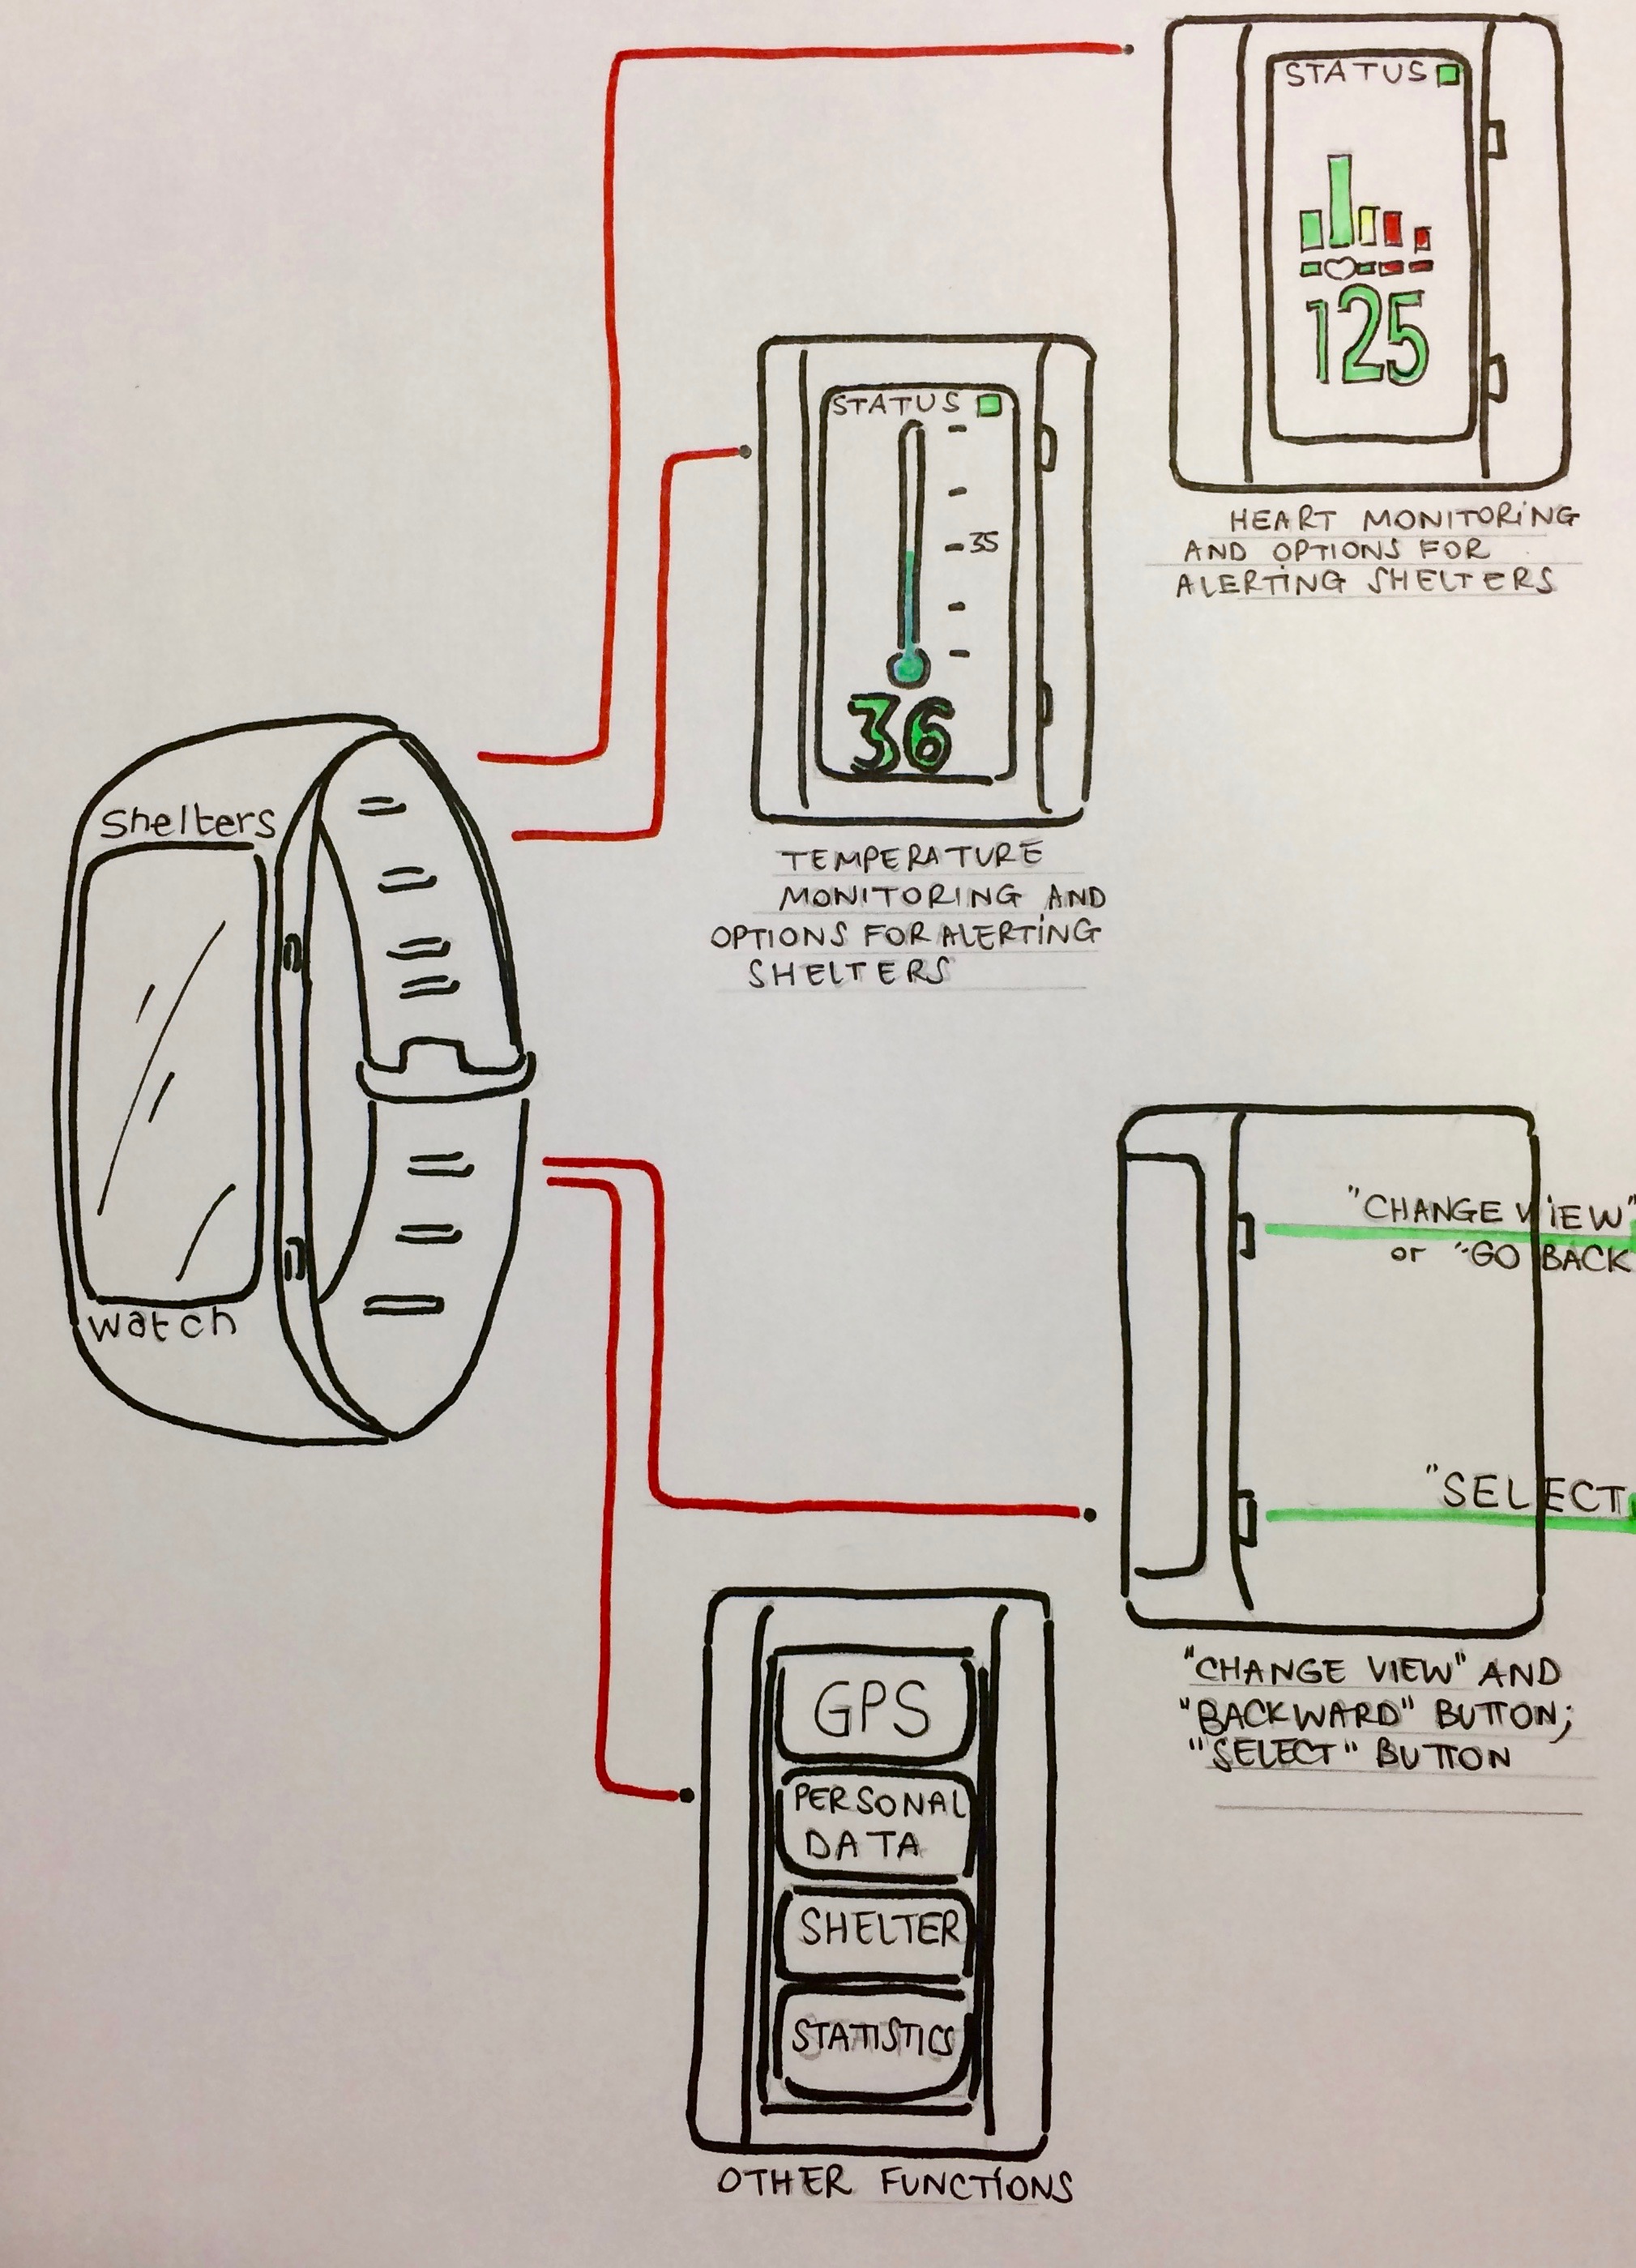 STATUS
125
HEART MONITORING
AND OPTIONS FOR
ALERTING SHELTERS
STATUS
35
36
TEMPERATURE
MONITORING AND
OPTIONS FOR ALERTING
SHELTERS
Shelters
watch
"CHANGE VIEW"
or "GO BACK
"SELECT
"CHANGE VIEW" AND
"BACKWARD" BUTTON;
"SELECT" BUTTON
GPS
PERSONAL
DATA
SHELTER
STATISTICS
OTHER FUNCTIONS